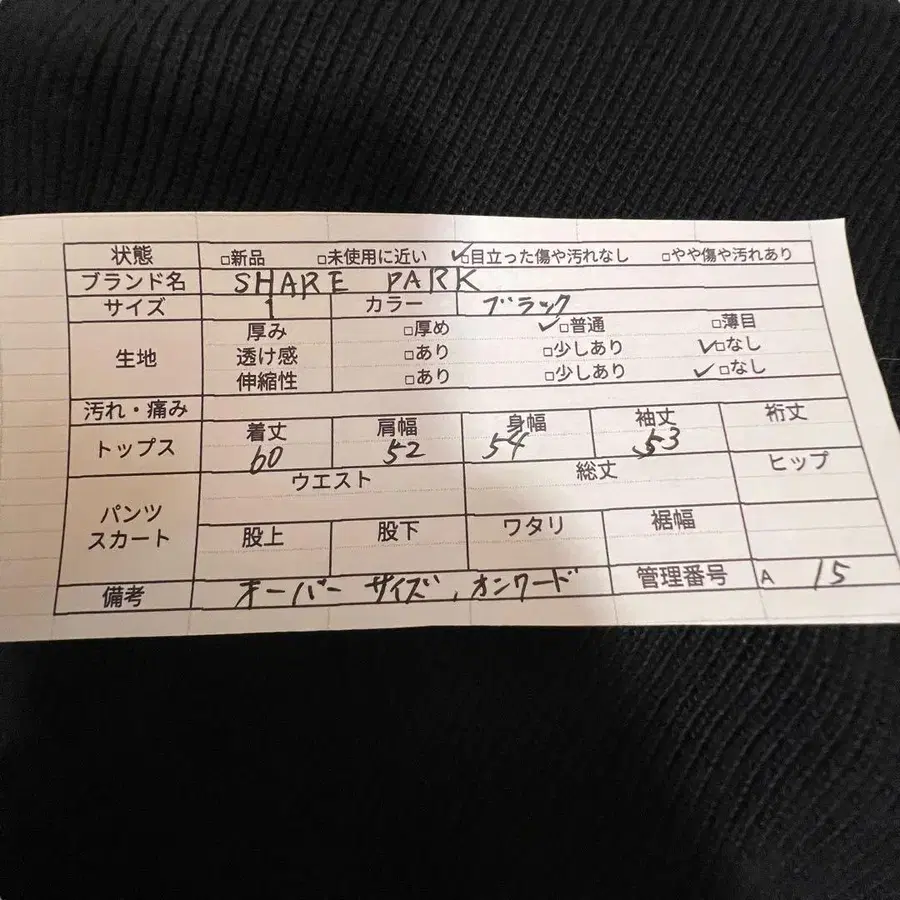 状態 □新品 □未使用に近い ✓□目立った傷や汚れなし □やや傷や汚れあり
ブランド名 SHARE PARK
サイズ 1 カラー ブラック
生地 厚み □厚め ✓□普通 □薄目
透け感 □あり □少しあり ✓□なし
伸縮性 □あり □少しあり ✓□なし
汚れ・痛み
トップス 着丈 60 肩幅 52 身幅 54 袖丈 53 裄丈
パンツ スカート ウエスト 総丈 ヒップ
股上 股下 ワタリ 裾幅
備考 オーバーサイズ、オンワード 管理番号 A 15